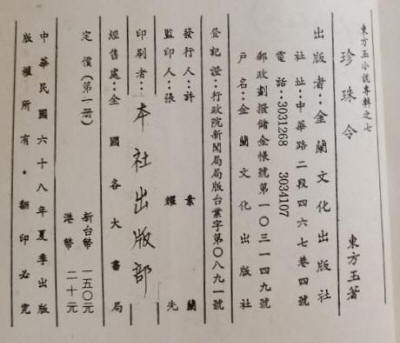 東方玉小說專輯之七
珍珠令
東方玉著
出版者：金蘭文化出版社
社址：中華路二段四六七巷四號
電話：3031268 3034107
郵政劃撥儲金帳號第一〇三一四九號
戶名：金蘭文化出版社
登記證：行政院新聞局局版台業字第〇八九一號
發行人：許業蘭
監印人：張耀先
印刷者：本社出版部
經售處：全國各大書局
定價(第一冊) 新台幣一五〇元
港幣二十元
中華民國六十八年夏季出版
版權所有•翻印必究